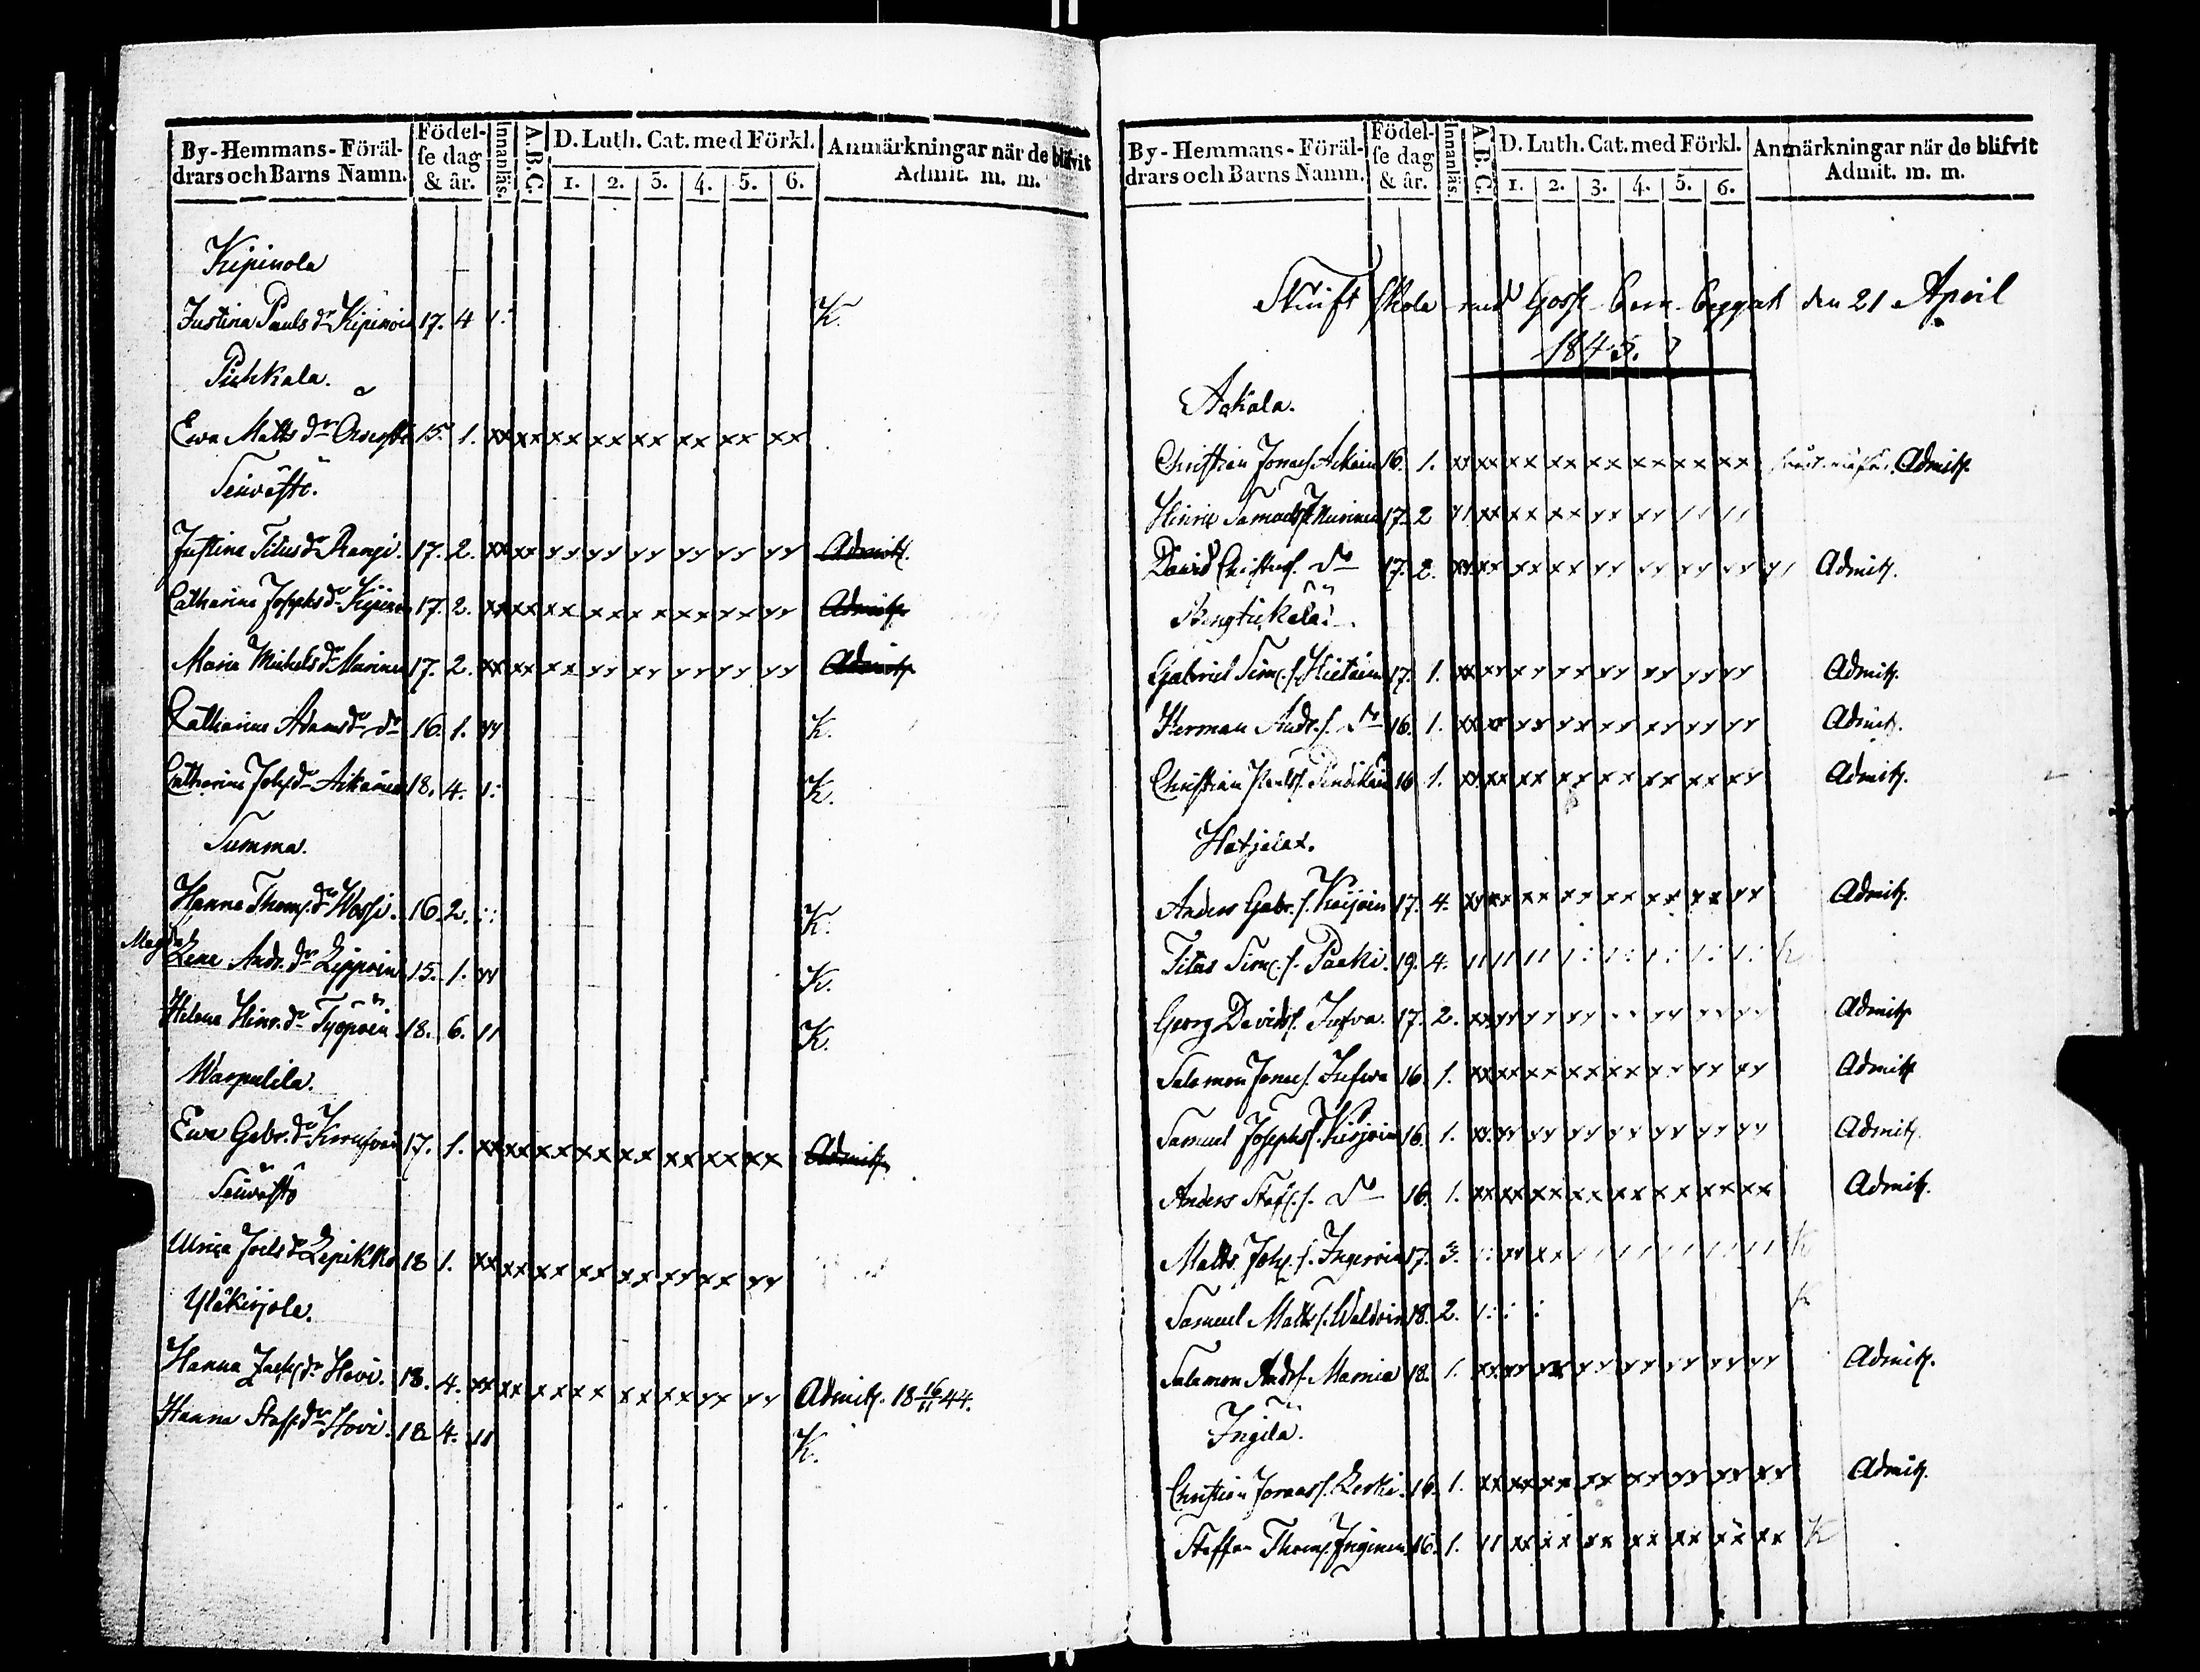 By-Hemmans-Föräl-
drars och Barns Namn.
Födel-
se dag
& år.
Innanläs.
A.B.C.
D. Luth. Cat. med Förkl.
1. 2. 3. 4. 5. 6.
Anmärkningar när de blifvit
Admit. m. m.
Kipinola
Justina Pauls dr Kipinoin 17. 4 K.
Pihkala.
Ewa Matts dr 15. 1. xx xx xx xx xx xx xx xx
Seivästö.
Justina Titus dr Rangi. 17. 2. xx xx yy yy yy yy yy yy Admitt.
Catharina Josephs dr Kipinoin 17. 2. xx xx xx xx xx xx xx yy Admitt.
Maria Michels dr Murinen 17. 2. xx xx xx yy xy yy yy yy Admitt.
Katharina Adams dr do 16. 1. yy K.
Catharina Joh. dr Aikainen 18. 4. K.
Summa.
Hanna Thom. dr Wossi. 16. 2. K.
Magda
Lena Andr. dr Lipproin 15. 1. yy K.
Helena Hinr. dr Työppöin 18. 6. 11 K.
Warpulila.
Ewa Gabr. dr 17. 1. xx xx xx xx xx xx xx xx Admitt.
Seivästö
Ulrica Joels dr Lepikko 18 1. xx xx xx xx xx xx xx yy
Yläkirjola.
Hanna Jacks dr Hovi. 18. 4. xx xx xx xx xx xx yy yy Admitt. 18 16/11 44.
Hanna Staff. dr Hovi. 18 4. 11 K.
By-Hemmans-Föräl-
drars och Barns Namn.
Födel-
se dag
& år.
Innanläs.
A.B.C.
D. Luth. Cat. med Förkl.
1. 2. 3. 4. 5. 6.
Anmärkningar när de blifvit
Admit. m. m.
Skrift skola med Goss barn begynt den 21 April
1845.
Askala.
Christian Jonas s. Aikain 16. 1. xx xx xx xx xx xx xx xx Admitt.
Hinric Samuels s. Murinen 17. 2 xx xx xx yy xy
David Christians s. do 17. 2. xx xx xx xx yy yy yy yy Admitt.
Bengtickälä.
Gabriel Sim. s. Hietain 17. 1. xx xy xy yy yy yy yy yy Admitt.
Herman Andr. s. do 16. 1. xx xx yy yy yy yy yy yy Admitt.
Christian Pauls s. 16 1. xx xx xx xx xx xx xx xy Admitt.
Hatjalax.
Anders Gabr. s. Kaijain 17. 4. xx xx xx xx xx xx xx yy Admitt.
Titus Sim. s. Paaki. 19. 4. 11 11 11 K
Georg Davids s. Jufva. 17. 2. xx yy yy yy yy yy yy Admitt
Salomon Jonas s. Jufwa 16. 1. xx xx xx xx xx yy yy Admitt
Samuel Josephs s. Kirjoin 16. 1. xx yy yy yy yy yy yy yy Admitt.
Anders Staf. s. do 16. 1. xx xx xx xx xx xx xx xx Admitt.
Matts Joh. s. Ingeroin 17. 3. xx xx K
Samuel Matts s. Waldoin 18. 2. K
Salomon Ands s. Mamia 18. 1. xx yy xx yy yy yy yy yy Admitt.
Ingilä.
Christian Jonas s. Leski. 16. 1. xx xx xx xx xx yy xx xy Admitt.
Steffan Thom. s. Inginen 16. 1. 11 xx xx xx xx xx xx xx K